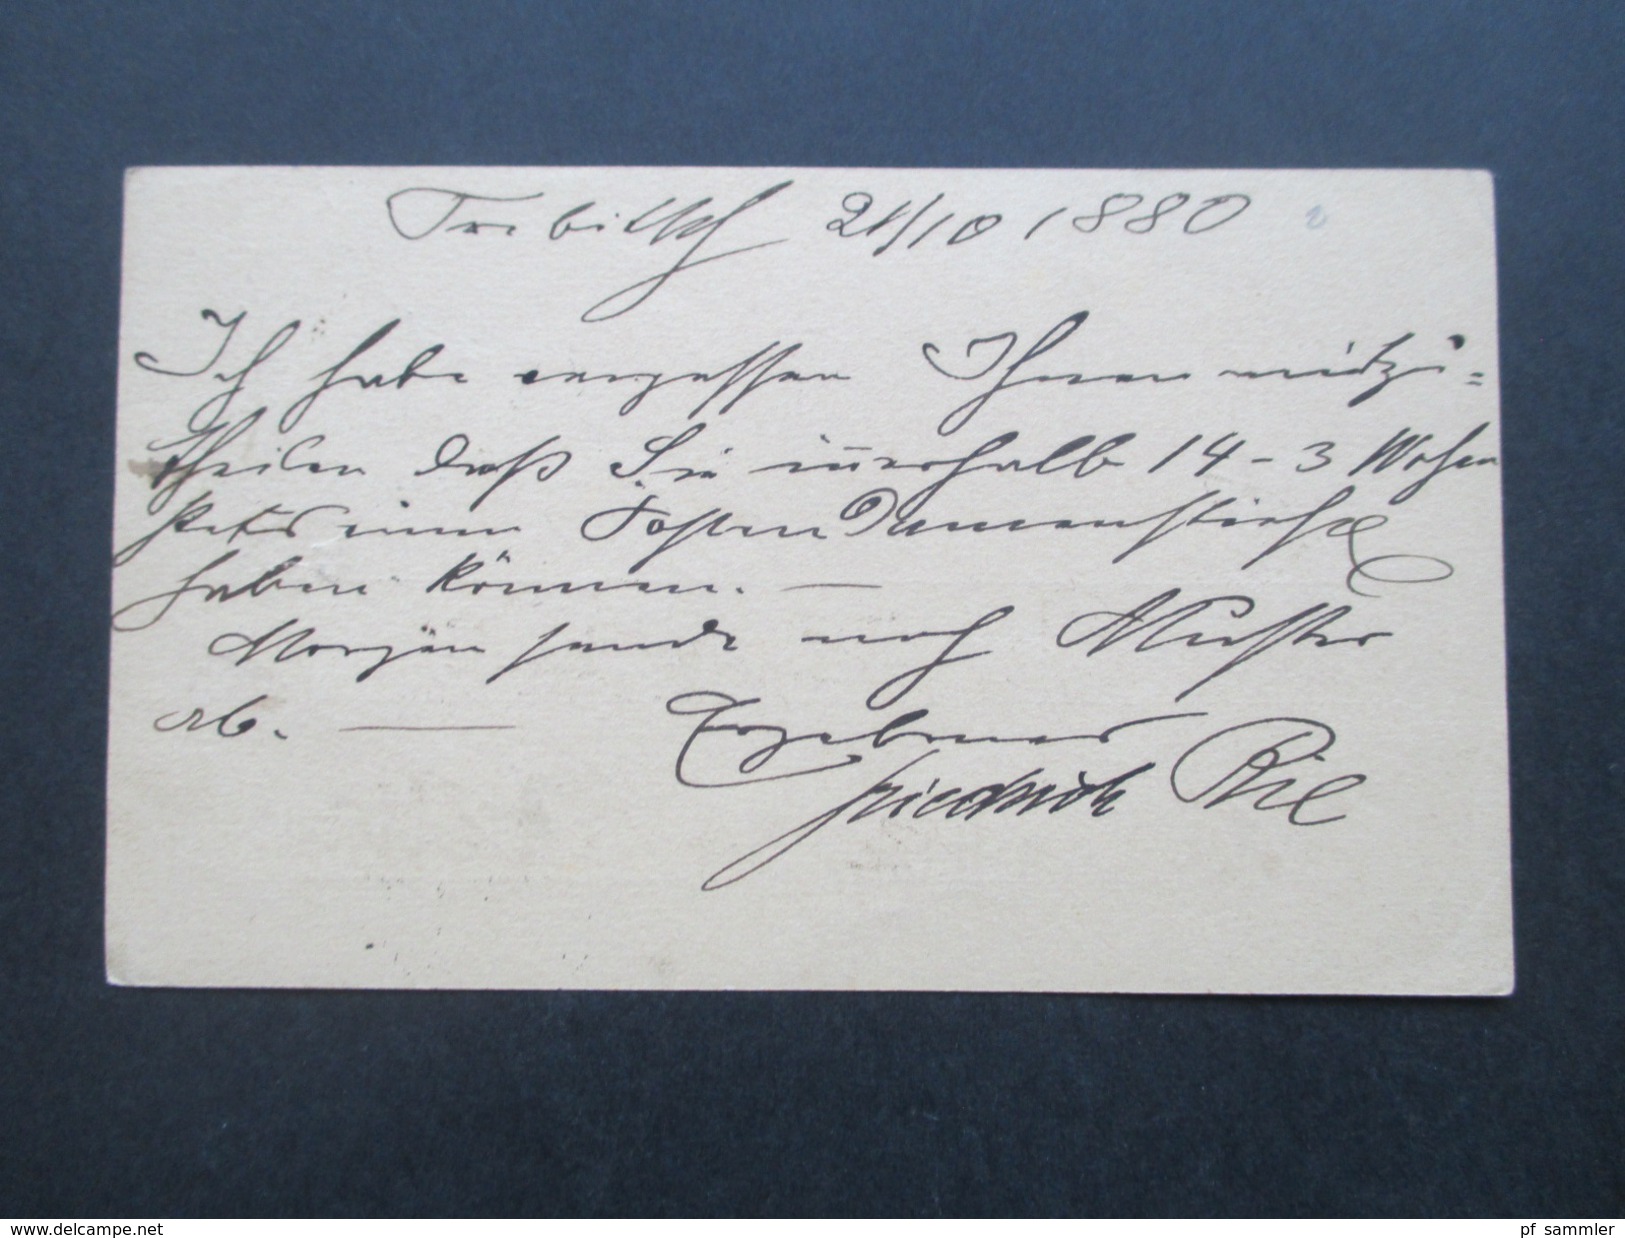 Trebitsch 21/10 1880
Ich habe vergessen Ihnen mitzu=
theilen daß Sie innerhalb 14 - 3 Wochen
stets einen Posten Damenstiefl
haben können. —
Morgen sende noch Muster
ab. — Ergebenst
Friedrich
www.delcampe.net
pf_sammler